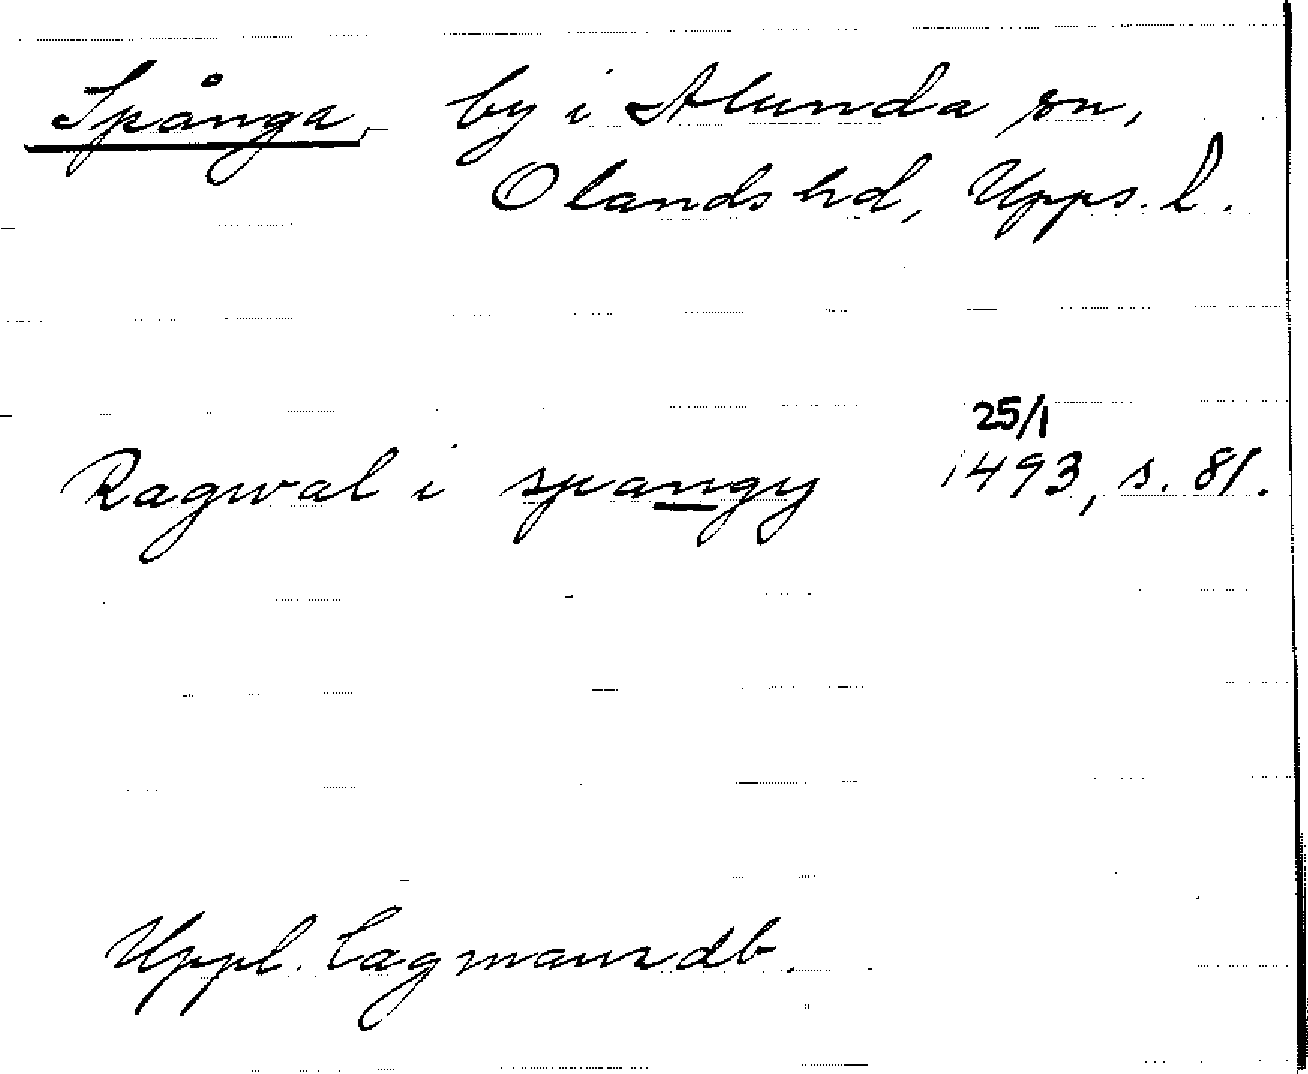 Spånga, by i Alunda sn,
Olands hd, Upps. l.
25/1
Ragwal i spangy 1493, s. 81.
Uppl. Lagmansdb.